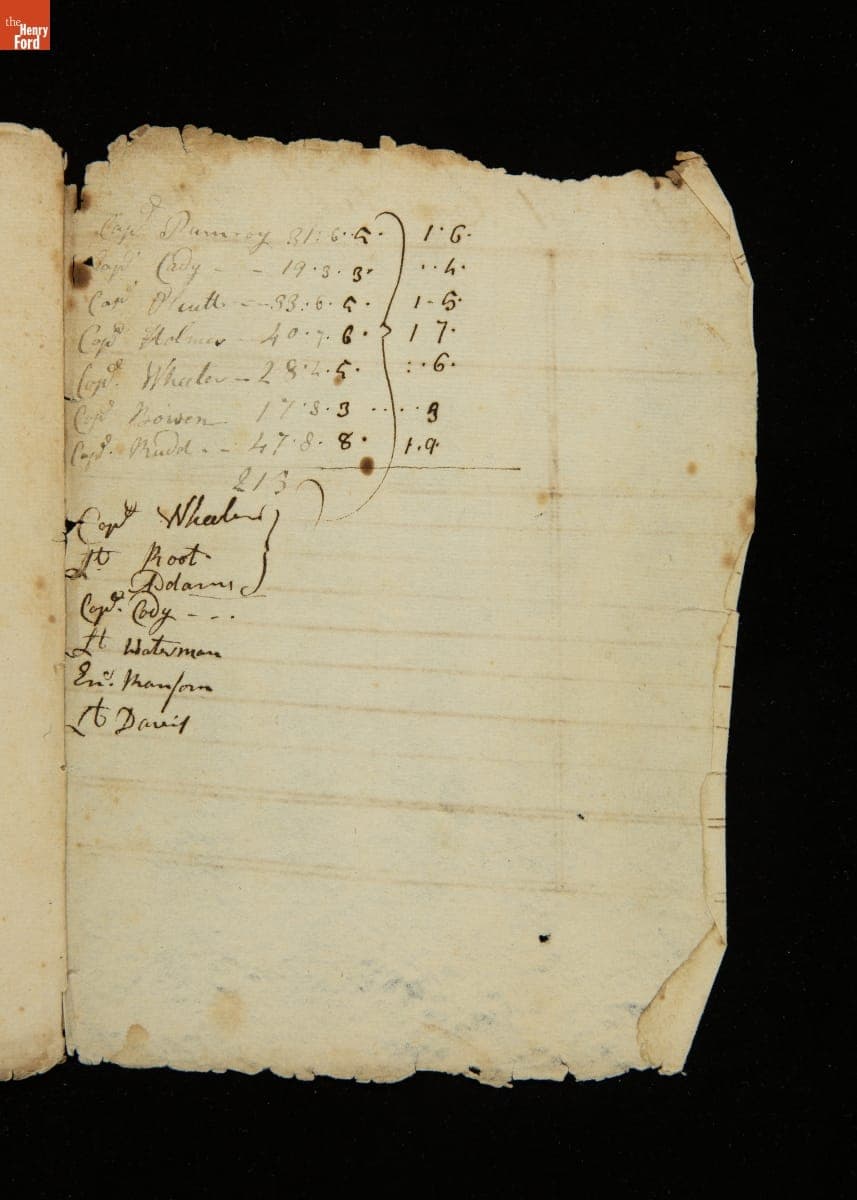 the
Henry
Ford
Capt Pumroy 31:6.5. 1.6.
Capt Cady - - 19.3.3. ..4.
Capt - - 33:6.5. 1-5.
Capt Holmes - 40.7.6. 17.
Capt. Wheeler - 28.4.5. :.6.
Capt Bowen 17.3.3 .... 3
Capt. Rudd - - 47.8.8. 1.9.
213
Capt Wheeler
Lt Root
Adams
Capt. Cady - - .
Lt Waterman
Ens. Ransom
Lt Davis